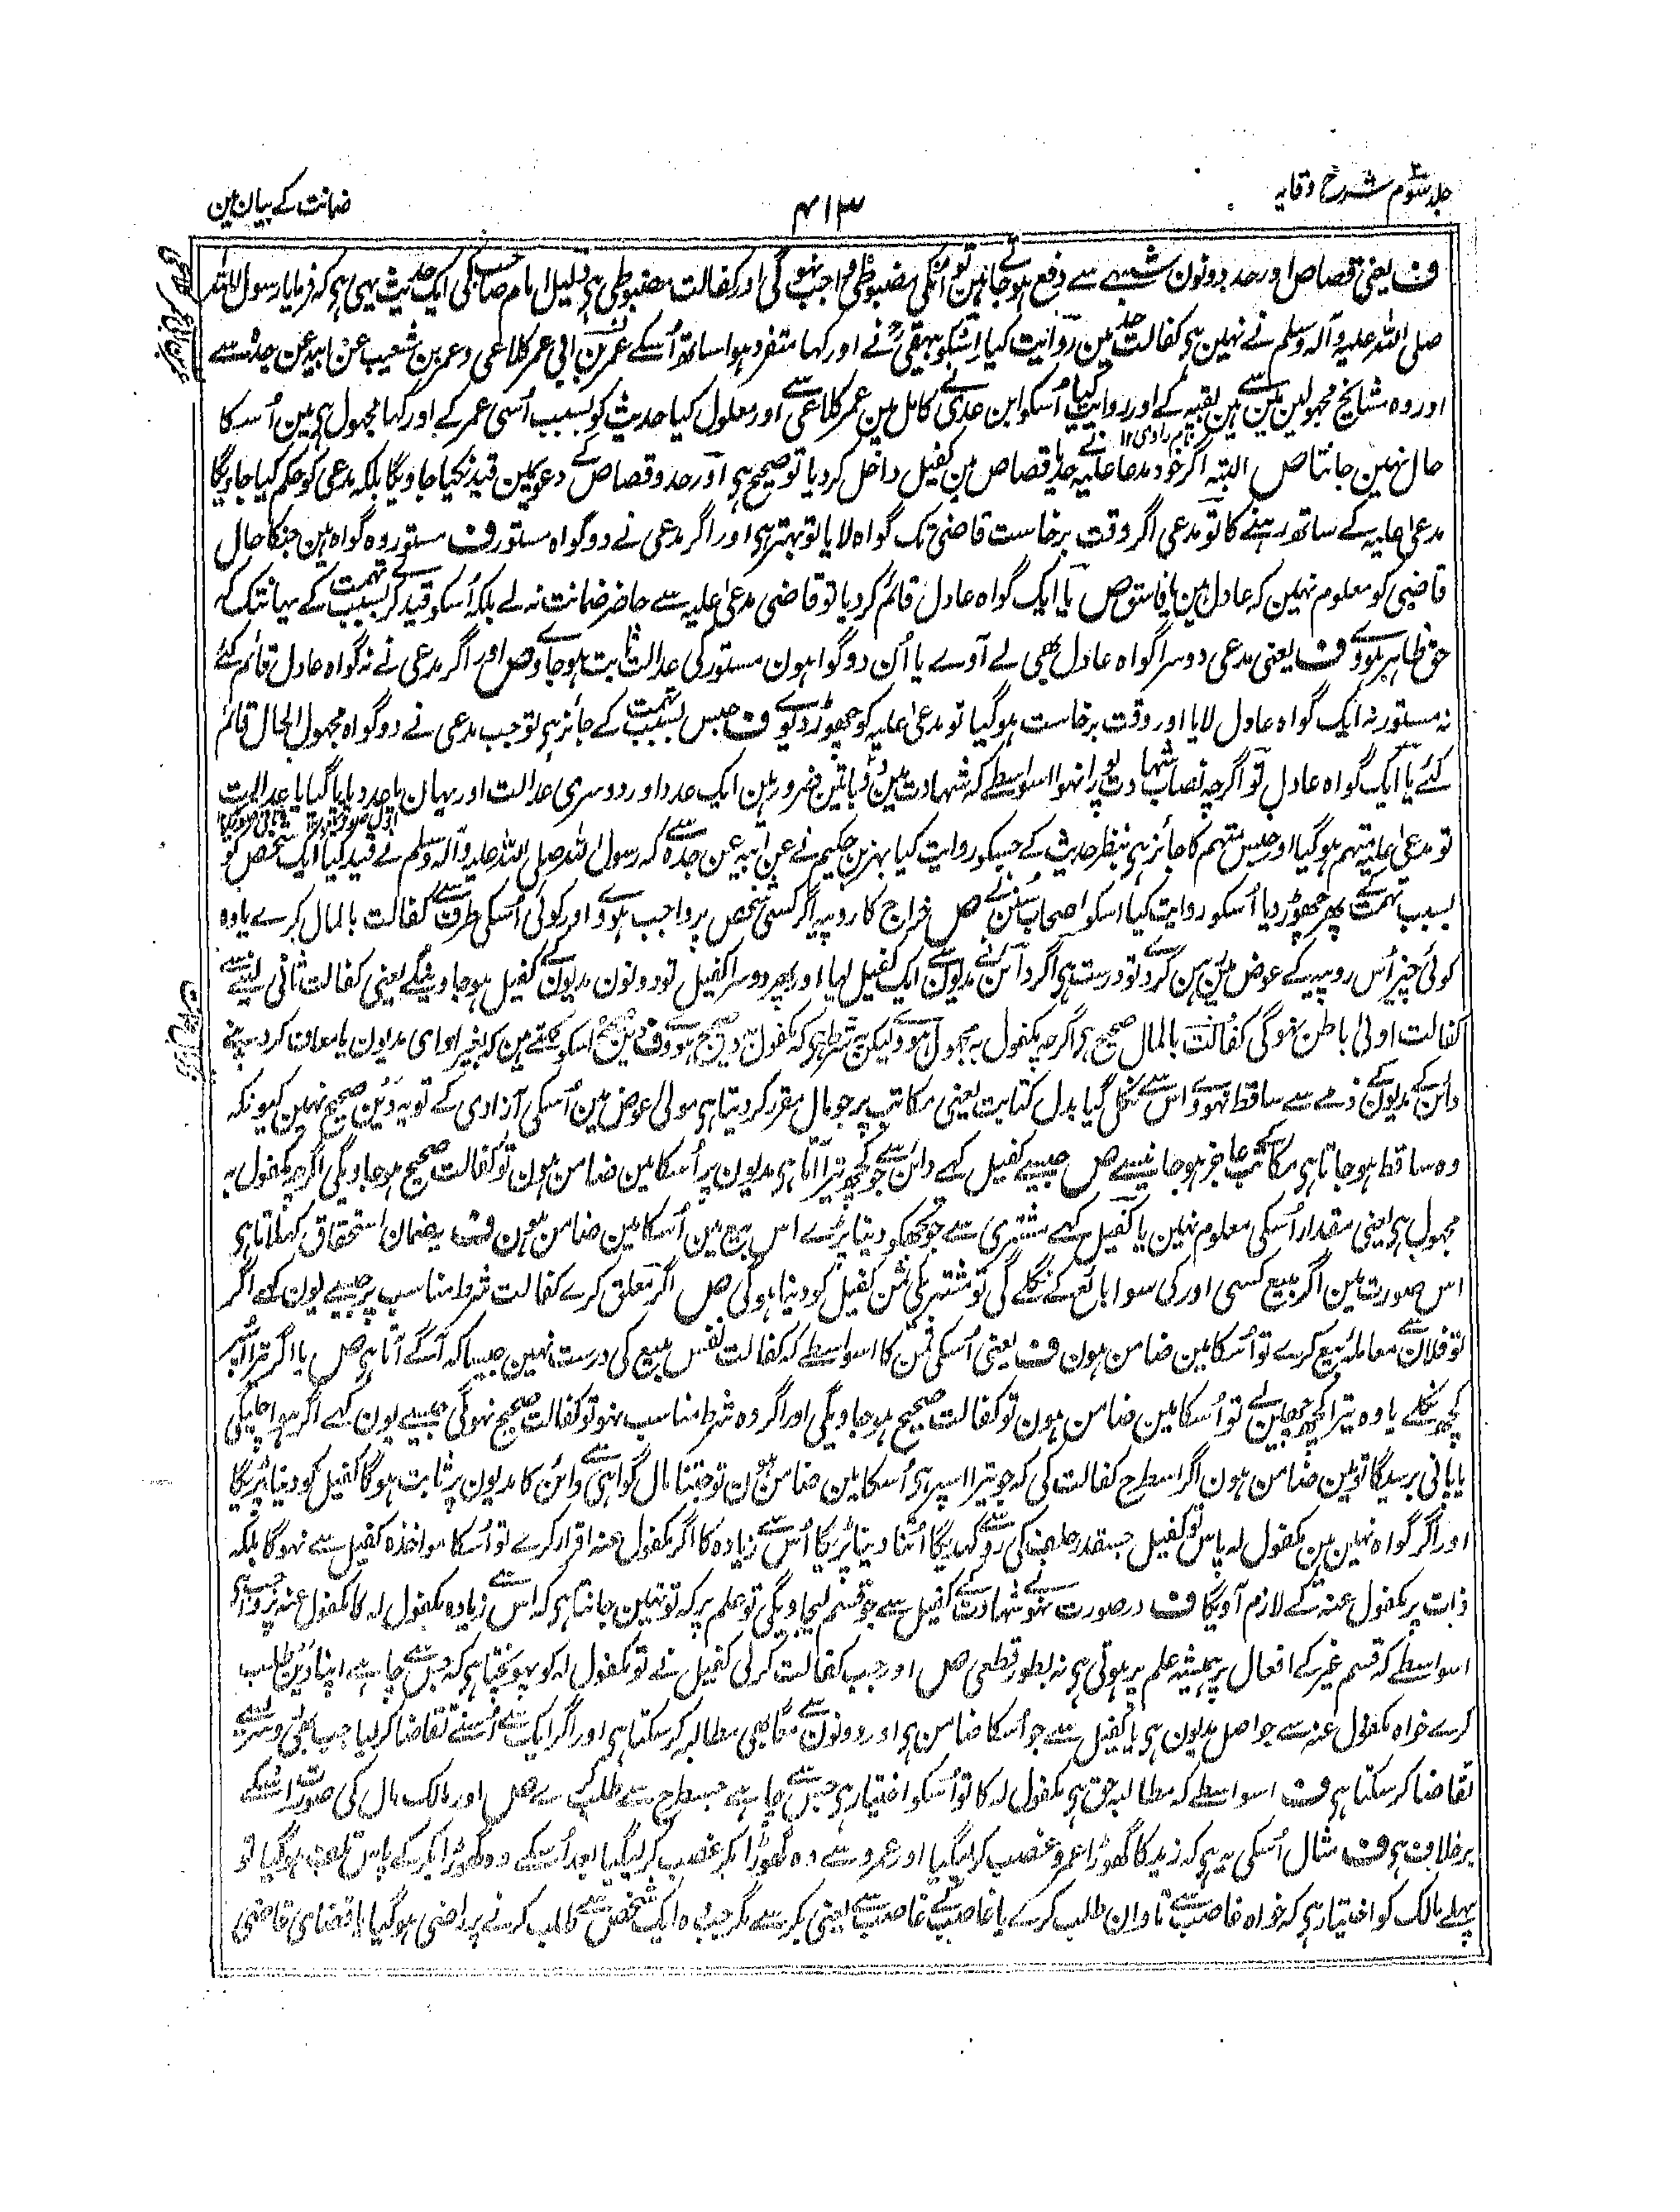 جلد سوم شرح وقایہ
۴۱۳
ضمانت کے بیان مین
ف یعنی قصاص اور حد دونون شبہے سے دفع ہو جاتے ہین تو انکی مضبوطی واجب نہو گی اور کفالت مضبوطی ہی دلیل امام صاحب کی ایک حدیث یہی ہی کہ فرمایا رسول اللہ
صلی اللہ علیہ وآلہ وسلم نے نہین ہی کفالت حد مین روایت کیا اسکو بیہقی نے اور کہا متفرد ہوا ساتھ اُسکے عمر بن ابی عمر کلاعی وعمر بن شعیب عن ابیہ عن جدہ سے
اور وہ مشایخ مجہولین مین سے ہین بقیہ کے اور روایت کیا اُسکو ابن عدی نے کامل مین عمر کلاعی سے اور معلول کیا حدیث کو بسبب اُسی عمر کے اور کہا مجہول ہی مین اُسکا
نام راوی ۱۲
حال نہین جانتا ص البتہ اگر خود مدعا علیہ نے حد یا قصاص مین کفیل داخل کر دیا تو صحیح ہی اور حد و قصاص کے دعوی مین قید نکیا جاویگا بلکہ مدعی کو حکم کیا جاویگا
مدعیٰ علیہ کے ساتھ رہنے کا تو مدعی اگر وقت برخاست قاضی تک گواہ لایا تو بہتر ہی اور اگر مدعی نے دو گواہ مستور ف مستور وہ گواہ ہین جنکا حال
قاضی کو معلوم نہین کہ عادل ہین یا فاسق ص یا ایک گواہ عادل قائم کر دیا تو قاضی مدعیٰ علیہ سے حاضر ضمانت نہ لے بلکہ اُسکو قید کرے بسبب تہمت کے یہانتک کہ
حق ظاہر ہووے ف یعنی مدعی دوسرا گواہ عادل بھی لے آوے یا اُن دو گواہون مستور کی عدالت ثابت ہو جاوے ص اور اگر مدعی نے نہ گواہ عادل قائم کئے
نہ مستور نہ ایک گواہ عادل لایا اور وقت برخاست ہو گیا تو مدعیٰ علیہ کو چھوڑ دیوے ف حبس بسبب تہمت کے جائز ہی تو جب مدعی نے دو گواہ مجہول الحال قائم
کئے یا ایک گواہ عادل تو اگرچہ نصاب شہادت پورا نہوا اسواسطے کہ شہادت مین دو باتین ضرور ہین ایک عدد اور دوسری عدالت اور یہان یا عدد پایا گیا یا عدالت
تو مدعیٰ علیہ متہم ہو گیا اور حبس متہم کا جائز ہی بنظر حدیث کے جسکو روایت کیا بہز بن حکیم نے عن ابیہ عن جدہ سے کہ رسول اللہ صلی اللہ علیہ وآلہ وسلم نے قید کیا ایک شخص کو
بسبب تہمت کے پھر چھوڑ دیا اُسکو روایت کیا اسکو اصحاب سنن نے ص خراج کا روپیہ اگر کسی شخص پر واجب ہووے اور کوئی اُسکی طرف سے کفالت بالمال کرے یا وہ
کوئی چیز اُس روپیہ کے عوض مین رہن کرے تو درست ہی اگر دائن نے مدیون سے ایک کفیل لیا اور پھر دوسرا کفیل تو دونون مدیون کے کفیل ہو جاوینگے یعنی کفالت ثانی لینے سے
کفالت اولیٰ باطل نہوگی کفالت بالمال صحیح ہی اگرچہ مکفول بہ مجہول ہووے لیکن یہ شرط ہی کہ مکفول بہ دین صحیح ہووے ف دین صحیح اسکو کہتے ہین کہ بغیر ادای مدیون یا معاف کر دینے
دائن کے مدیون کے ذمے سے ساقط نہووے اس سے نکل گیا بدل کتابت یعنی مکاتب پر جو مال مقرر کر دیتا ہی مولیٰ عوض مین اُسکی آزادی کے تو یہ دین صحیح نہین کیونکہ
وہ ساقط ہو جاتا ہی مکاتب کے عاجز ہو جانے سے ص جیسے کفیل کہے دائن سے جو کچھ تیرا آتا ہی مدیون پر اُسکا مین ضامن ہون تو کفالت صحیح ہو جاویگی اگرچہ مکفول بہ
مجہول ہی یعنی مقدار اُسکی معلوم نہین یا کفیل کہے مشتری سے جو تجھکو دینا پڑے اس بیع مین اُسکا مین ضامن ہون ف یہ ضمان استحقاق کہلاتا ہی
اس صورت مین اگر مبیع کسی اور کی سوا بائع کے نکلے گی تو مشتری کی ثمن کفیل کو دینا ہوگی ص اگر معلق کرے کفالت شرط مناسب پر جیسے یون کہے اگر
تو فلان سے معاملہ بیع کرے تو اُسکا مین ضامن ہون ف یعنی اُسکی ثمن کا اسواسطے کہ کفالت نفس مبیع کی درست نہین جیسا کہ آگے آتا ہی ص یا اگر تیرا اُسپر
کچھ نکلے یا وہ تیرا کچھ چھین لے تو اُسکا مین ضامن ہون تو کفالت صحیح ہو جاویگی اور اگر وہ شرط مناسب نہو تو کفالت صحیح نہوگی جیسے یون کہے اگر ہوا چلیگی
یا پانی برسیگا تو مین ضامن ہون اگر اسطرح کفالت کی کہ جو تیرا اسپر ہی اُسکا مین ضامن ہون تو جتنا مال گواہی سے دائن کا مدیون پر ثابت ہوگا کفیل کو دینا پڑیگا
اور اگر گواہ نہین ہین مکفول لہ پاس تو کفیل جسقدر حلف کی رو سے کہدیگا اُتنا دینا پڑیگا اُس سے زیادہ کا اگر مکفول عنہ اقرار کرے تو اُسکا مواخذہ کفیل سے نہوگا بلکہ
ذات پر مکفول عنہ کے لازم آویگا ف درصورت نہونے شہادت کے کفیل سے جو قسم لیجاویگی تو علم پر کہ تو نہین جانتا ہی کہ اس سے زیادہ مکفول لہ کا مکفول عنہ پر واجب ہی
اسواسطے کہ قسم غیر کے افعال پر ہمیشہ علم پر ہوتی ہی نہ بطور قطعی ص اور جب کفالت کر لی کفیل نے تو مکفول لہ کو پہونچتا ہی کہ جس سے چاہے اپنا دین طلب
کرے خواہ مکفول عنہ سے جو اصل مدیون ہی یا کفیل سے جو اُسکا ضامن ہی اور دونون سے معًا بھی مطالبہ کر سکتا ہی اور اگر ایک سے اُسنے تقاضا کر لیا جب بھی دوسرے سے
تقاضا کر سکتا ہی ف اسواسطے کہ مطالبہ حق ہی مکفول لہ کا تو اُسکو اختیار ہی جس سے چاہے جسطرح سے طلب کرے ص اور مالک مال کی صورت اسکے
برخلاف ہی ف مثال اُسکی یہ ہی کہ زید کا گھوڑا عمرو غصب کر لیگیا اور عمرو سے وہ گھوڑا بکر غصب کر لیگیا بعد اُسکے وہ گھوڑا بکر کے پاس تلف ہو گیا تو
پہلے مالک کو اختیار ہی کہ خواہ غاصب سے تاوان طلب کرے یا غاصب کے غاصب سے یعنی بکر سے مگر جب وہ ایک شخص سے طلب کرنے پر راضی ہو گیا یا قضای قاضی